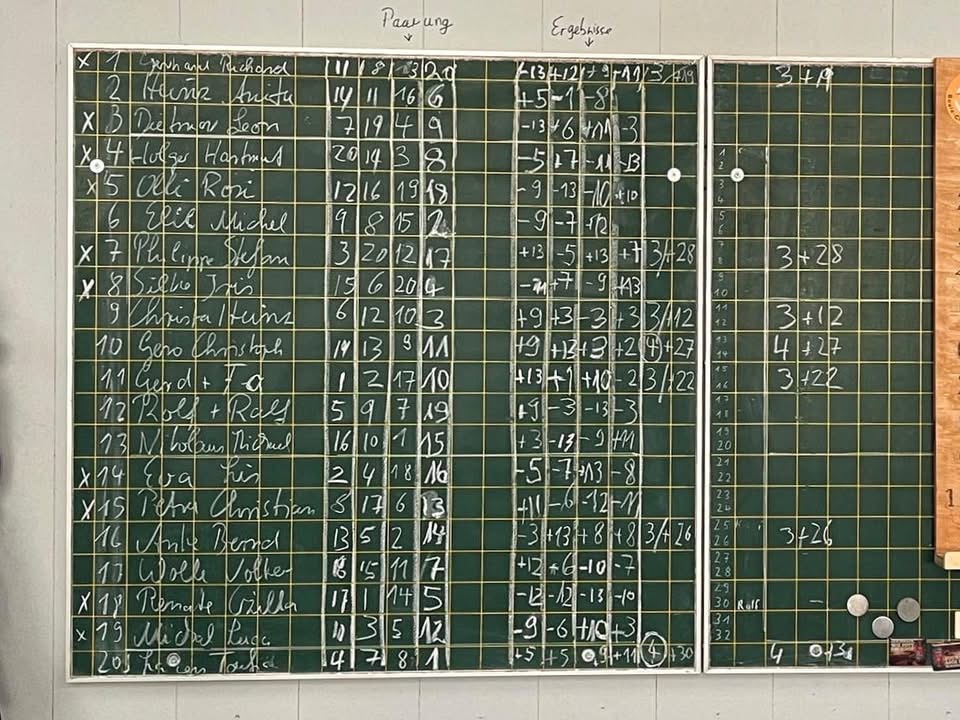 Paarung Ergebnisse
x 1 Richard 11 8 13 20 -13 +12 +9 -11 3/+19 3+19
2 Heinz Anita 14 11 16 6 +5 -1 -8
x 3 Dietmar Leon 7 19 4 9 -13 +6 +11 -3
x 4 Holger Hartmut 20 14 3 8 -5 +7 -11 -13
x 5 Olli Rosi 12 16 19 18 -9 -13 -10 +10
6 Michel 9 8 15 2 -9 -7 +12
x 7 Philippe Stefan 3 20 12 17 +13 -5 +13 +7 3/+28 3+28
x 8 Silke Iris 15 6 20 4 +7 -9 +13
9 Christa/Heinz 6 12 10 3 +9 +3 -3 +3 3/+12 3+12
10 Gero Christoph 14 13 9 11 +9 +13 +3 +2 (4)+27 4+27
11 Gerd + 1 2 17 10 +13 +1 +10 -2 3/+22 3+22
12 Rolf + Ralf 5 9 7 19 +9 -3 -13 -3
13 16 10 1 15 +3 -13 -9 +11
x 14 Eva 2 4 18 16 -5 -7 +13 -8
x 15 Petra Christian 8 17 6 13 +11 -6 -12 -11
16 Bernd 13 5 2 14 -3 +13 +8 +8 3/+26 3+26
17 Volker 18 15 11 7 +12 +6 -10 -7
x 18 Renate 17 1 14 5 -12 -12 -13 -10
x 19 Luca 3 5 12 -9 -6 +10 +3
20 4 7 8 1 +5 +5 9 +11 (4)+30 4